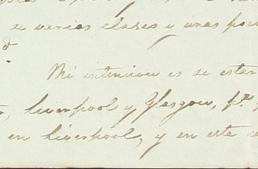 de varias clases y unas
Mi intencion es de estar
Liverpool y Glasgow, pa.
en Liverpool, y en esta